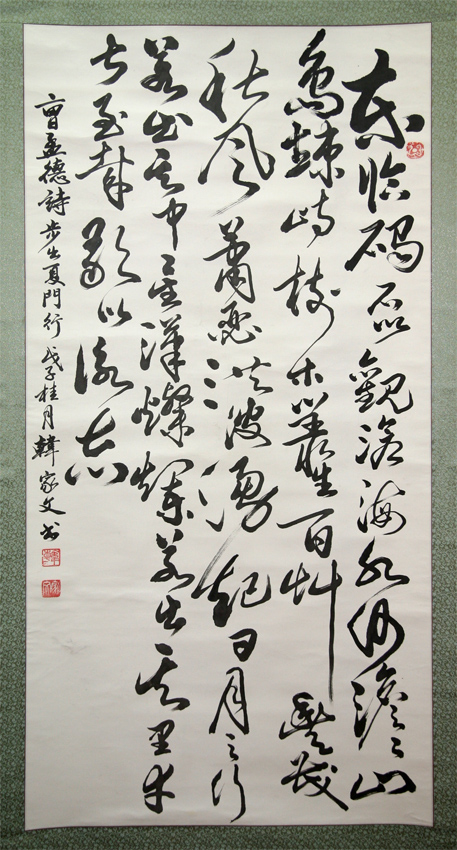 东临碣石以觀滄海水何澹〻山
島竦峙樹木叢生百艸豐茂
秋风蕭瑟洪波湧起日月之行
若出其中星漢燦爛若出其里幸
甚至哉歌以詠志
曹孟德詩步出夏門行 戊子桂月韓家文书